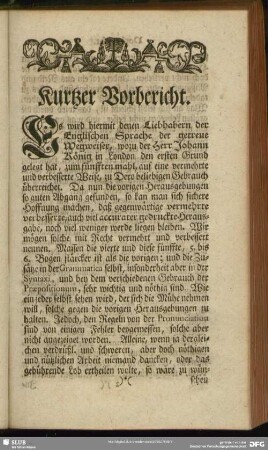 Kurtzer Vorbericht.
Es wird hiermit denen Liebhabern der
Englischen Sprache der getreue
Wegweiser, wozu der Herr Johann
König in London den ersten Grund
gelegt hat, zum fünfften mahl, auf eine vermehrte
und verbesserte Weise, zu Dero beliebigen Gebrauch
überreichet. Da nun die vorigen Herausgebungen
so guten Abgang gefunden, so kan man sich sichere
Hoffnung machen, daß gegenwärtige vermehrte
verbesserte auch viel accurater gedruckte Heraus-
gabe, noch viel weniger werde liegen bleiben. Wir
mögen solche mit Recht vermehrt und verbessert
nennen. Massen die vierte und diese fünffte, 5. biß
6. Bogen stärcker ist als die vorigen; und die Zu-
sätze in der Grammatica selbst, insonderheit aber in der
Syntaxi, und bey dem verschiedenen Gebrauch der
Præpositionum, sehr wichtig und nöthig sind. Wie
ein jeder selbst sehen wird, der sich die Mühe nehmen
will, solche gegen die vorigen Herausgebungen zu
halten. Jedoch, den Regeln von der Pronunciation
sind von einigen Fehler beygemessen, solche aber
nicht angezeiget worden. Alleine, wenn ja derglei-
chen verdrüßl. und schweren, aber doch nöthigen
und nützlichen Arbeit niemand dancken, oder das
gebührende Lob ertheilen wolte, so wäre zu wün-
schen
SLUB
DFG